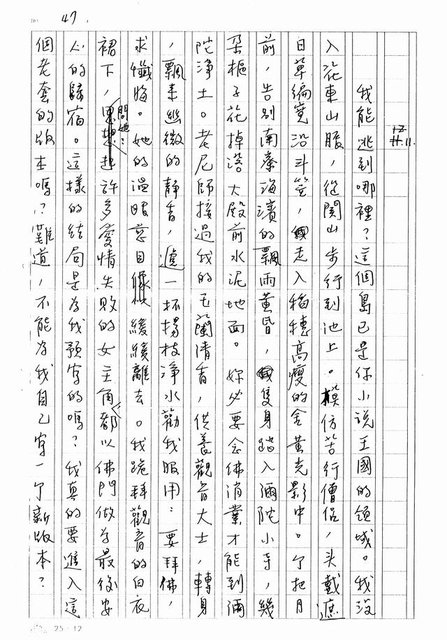 47
12
廿.11.
我能逃到哪裡？這個島已是你小說王國的領域。我沒
入花東山腹，從關山步行到池上。模仿苦行僧侶，頭戴遮
日草編寬沿斗笠，走入稻穗高瘦的金黃光影中。了把月
前，告別南寮海濱的飄雨黃昏，隻身踏入彌陀小寺，幾
朵梔子花掉落大殿前水泥地面。妳必要念佛消業才能到彌
陀淨土。老尼師接過我的玉蘭清香，供養觀音大士，轉身
，飄來幽微的靜香，遞一杯楊枝淨水勸我服用：要拜佛，
求懺悔。她的溫暖慈目緩緩離去。我跪拜觀音的白衣
裙下，問她：許多愛情失敗的女主角都以佛門做為最後安
心的歸宿。這樣的結局是為我預寫的嗎？我真的要進入這
個老套的版本嗎？難道，不能為我自己寫一个新版本？
25×12